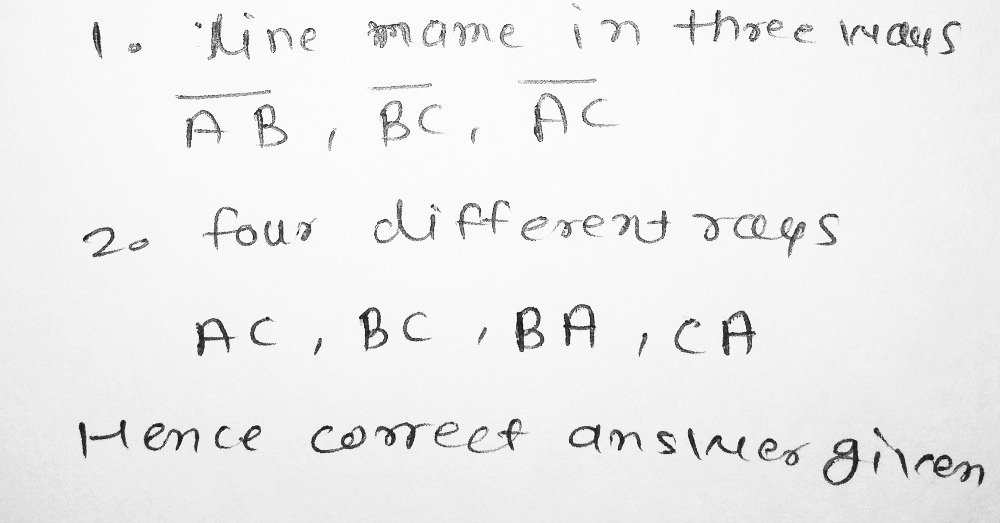 1. line name in three ways
A̅B̅, B̅C̅, A̅C̅
2. four different rays
AC, BC, BA, CA
Hence correct answer given